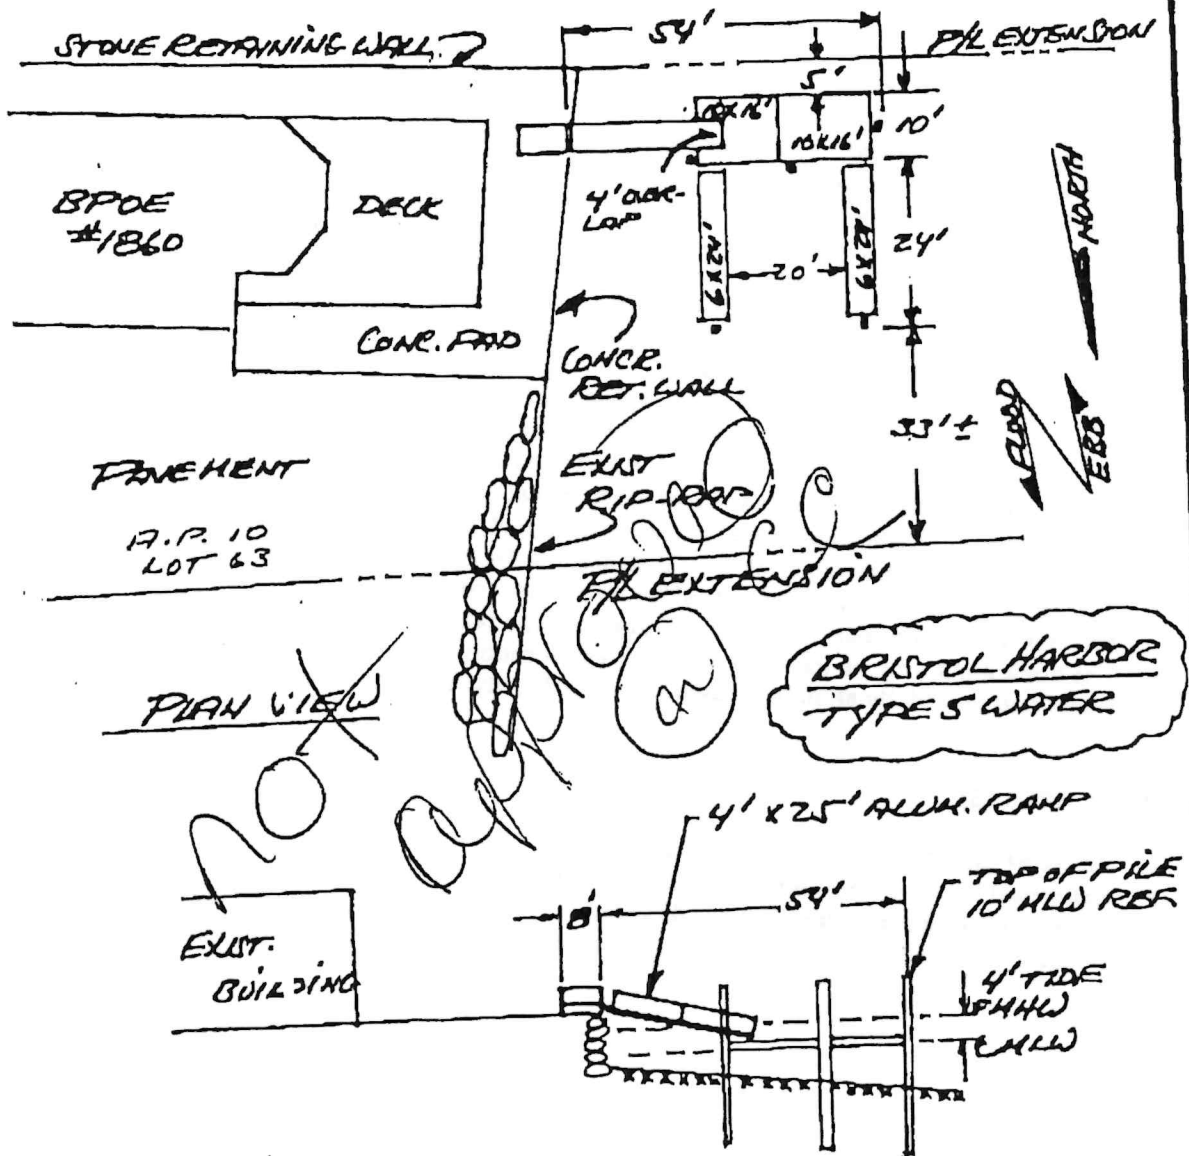 54'
STONE RETAINING WALL
P/L EXTENSION
5'
10X16'
10X16'
10'
BPOE
#1860
DECK
4' OVER-
LAP
6X24'
20'
6X24'
24'
NORTH
CONC. PAD
CONCR.
RET. WALL
33'±
FLOOD
EBB
PAVEMENT
EXIST
RIP-RAP
A.P. 10
LOT 63
P/L EXTENSION
BRISTOL HARBOR
TYPE 5 WATER
PLAN VIEW
not
approved
4' X 25' ALUM. RAMP
8'
54'
TOP OF PILE
10' MLW REF
EXIST.
BUILDING
4' TIDE
MHW
MLW